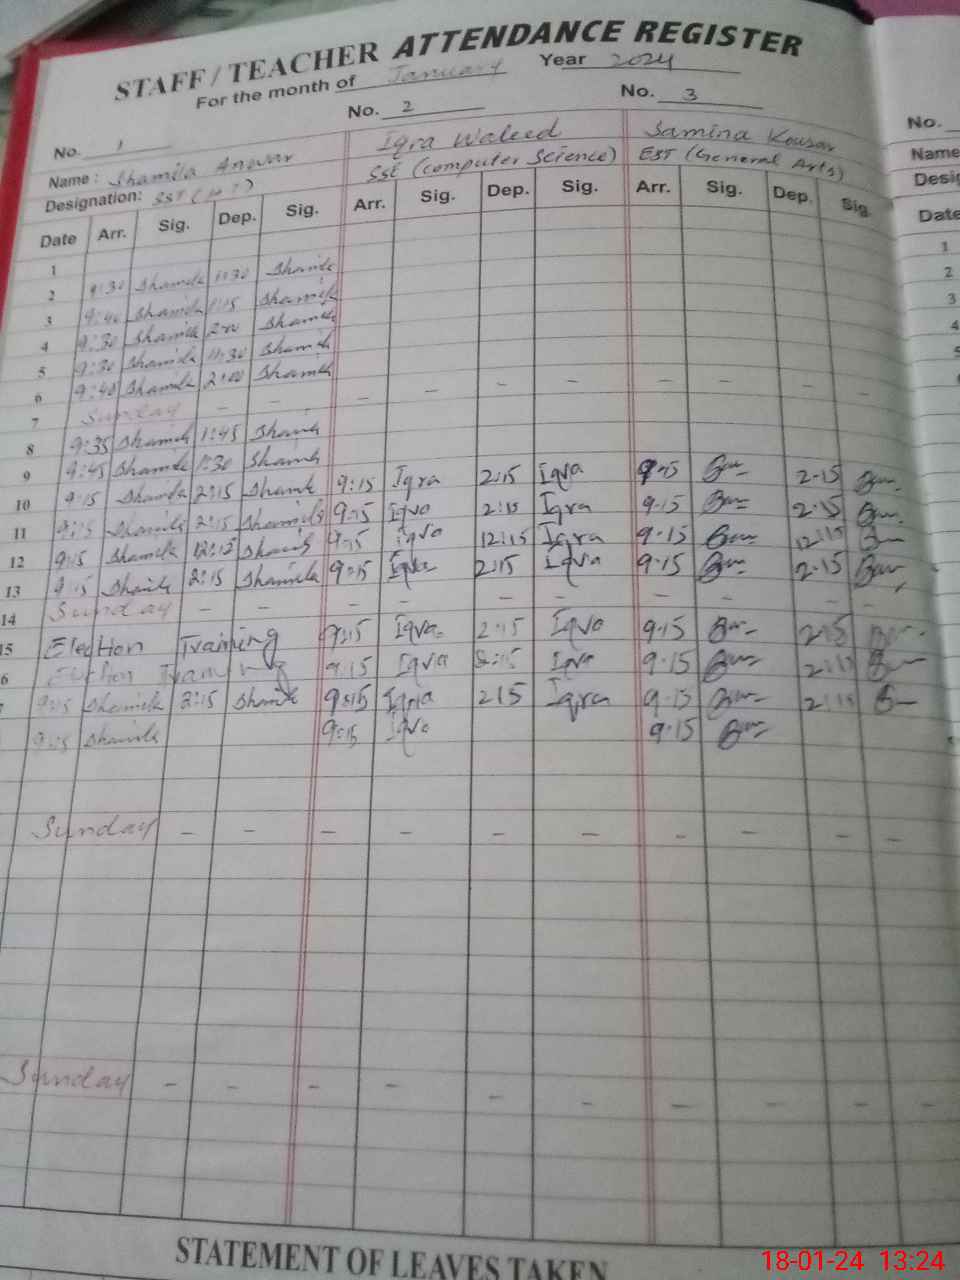 STAFF / TEACHER ATTENDANCE REGISTER
For the month of January Year 2024
No. 1 No. 2 No. 3 No.
Name: Shamila Anwar Iqra Waleed Samina Kousar Name
Designation: SST SSE (computer Science) EST (General Arts) Desig
Date Arr. Sig. Dep. Sig. Arr. Sig. Dep. Sig. Arr. Sig. Dep. Sig. Date
1 9:30 Shamila 11:30 Shamila 1
2 9:40 Shamila 1:15 Shamila 2
3 9:30 Shamila 2:00 Shamila 3
4 9:30 Shamila 11:30 Shamila
5 9:40 Shamila 2:00 Shamila 5
6 Sunday - - - - - - - - -
7
8 9:35 Shamila 1:45 Shamila
9 9:45 Shamila 1:30 Shamila
10 9:15 Shamila 2:15 Shamila 9:15 Iqra 2:15 Iqra 9-15 2-15
11 9:15 Shamila 2:15 Shamila 9:15 Iqra 2:15 Iqra 9-15 2-15
12 9:15 Shamila 12:15 Shamila 9:15 Iqra 12:15 Iqra 9-15 12:15
13 9:15 Shamila 2:15 Shamila 9:15 Iqra 2:15 Iqra 9-15 2-15
14 Sunday - - - - - - - - - -
15 Election Training 9:15 Iqra 2:15 Iqra 9-15 2-15
6 Election Training 9:15 Iqra 2:15 Iqra 9-15 2:15
9:15 Shamila 2:15 Shamila 9:15 Iqra 2:15 Iqra 9-15 2:15
9:15 Shamila 9:15 Iqra 9-15
Sunday - - - - - - - - - -
Sunday - - - - - - - - - -
STATEMENT OF LEAVES TAKEN
18-01-24 13:24